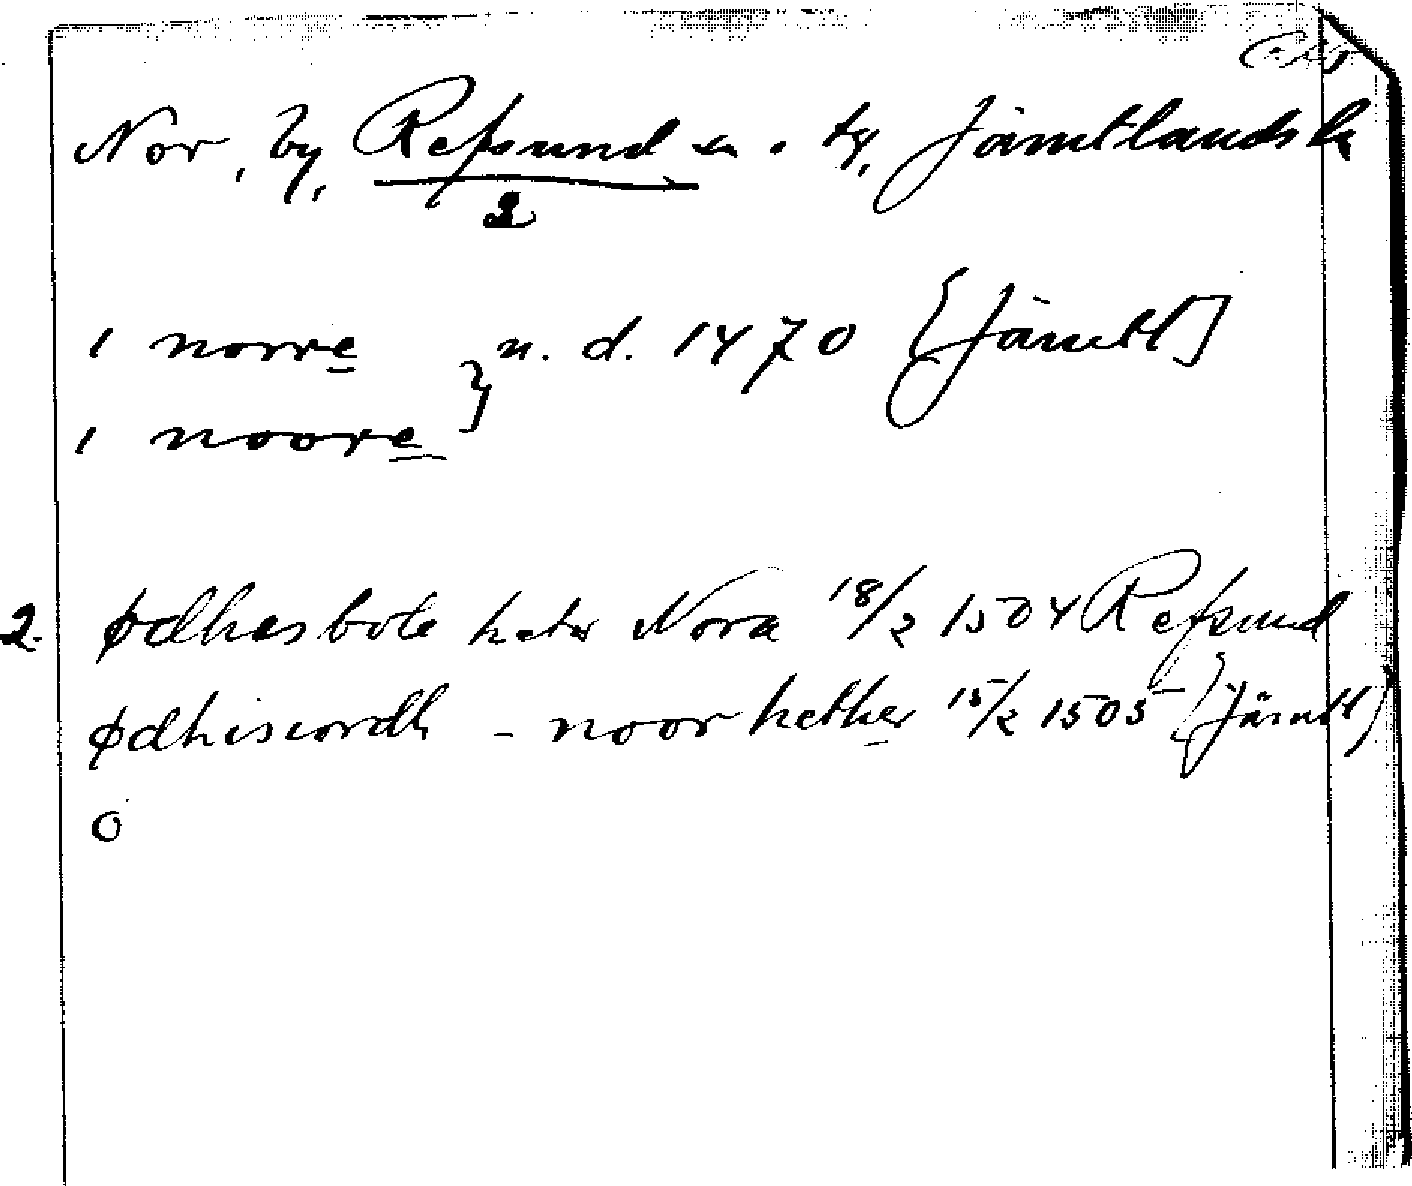 Nor, by, Refsund sn. tg, Jämtlands l.
2
1 norre } u. d. 1470 [Jämtl]
1 noore
2. ødhesbole heter Nora 18/2 1504 Refsund
ødhisiordh - noor hether 15/2 1505 (Jämtl)
o